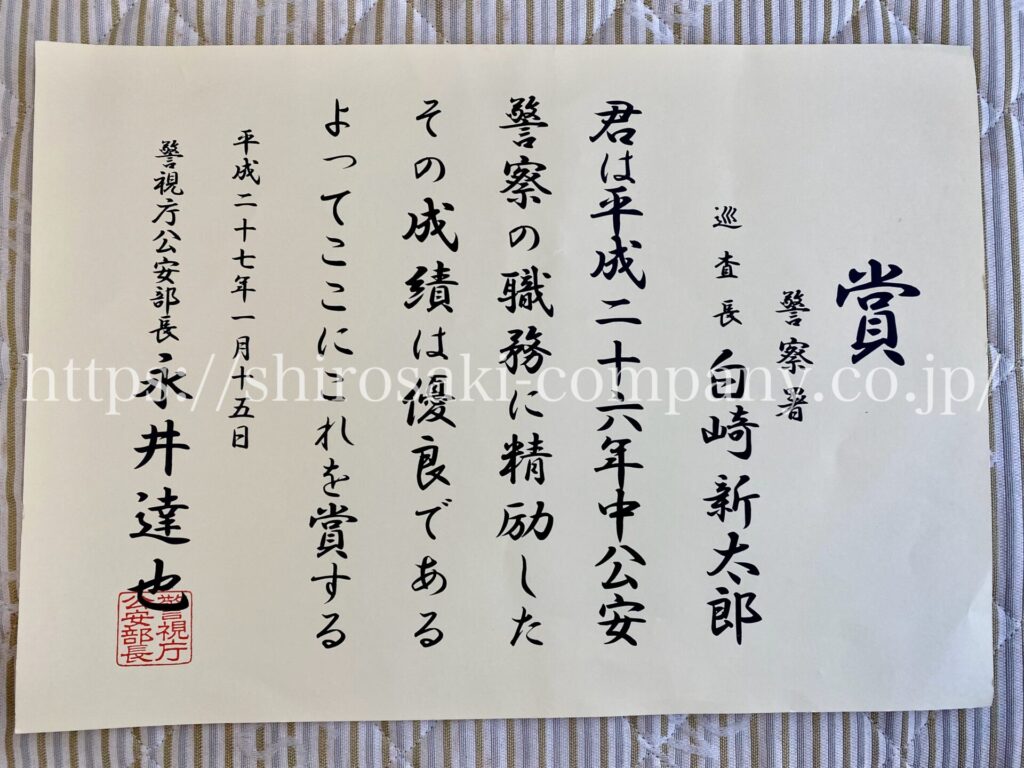 賞
警察署
巡査長 白崎新太郎
君は平成二十六年中公安
警察の職務に精励した
その成績は優良である
よってここにこれを賞する
平成二十七年一月十五日
警視庁公安部長 永井達也
警視庁
公安部長
https://shirosaki-company.co.jp/